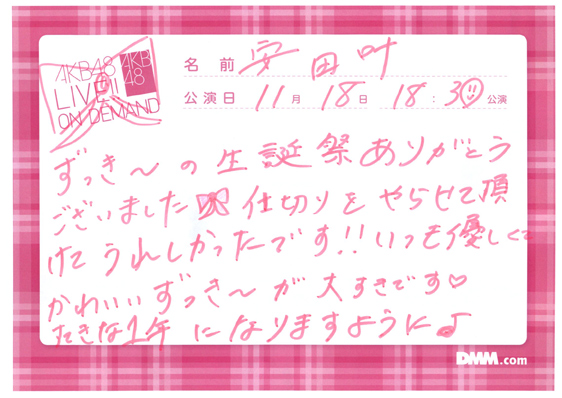 AKB48
LIVE!!
ON DEMAND
AKB
48
名前 安田叶
公演日 11月18日 18:30公演
ずっき〜の生誕祭ありがとう
ございました 仕切りをやらせて頂
けてうれしかったです!!いつも優しくて
かわいいずっき〜が大すきです♡
すてきな1年になりますように♪
DMM.com